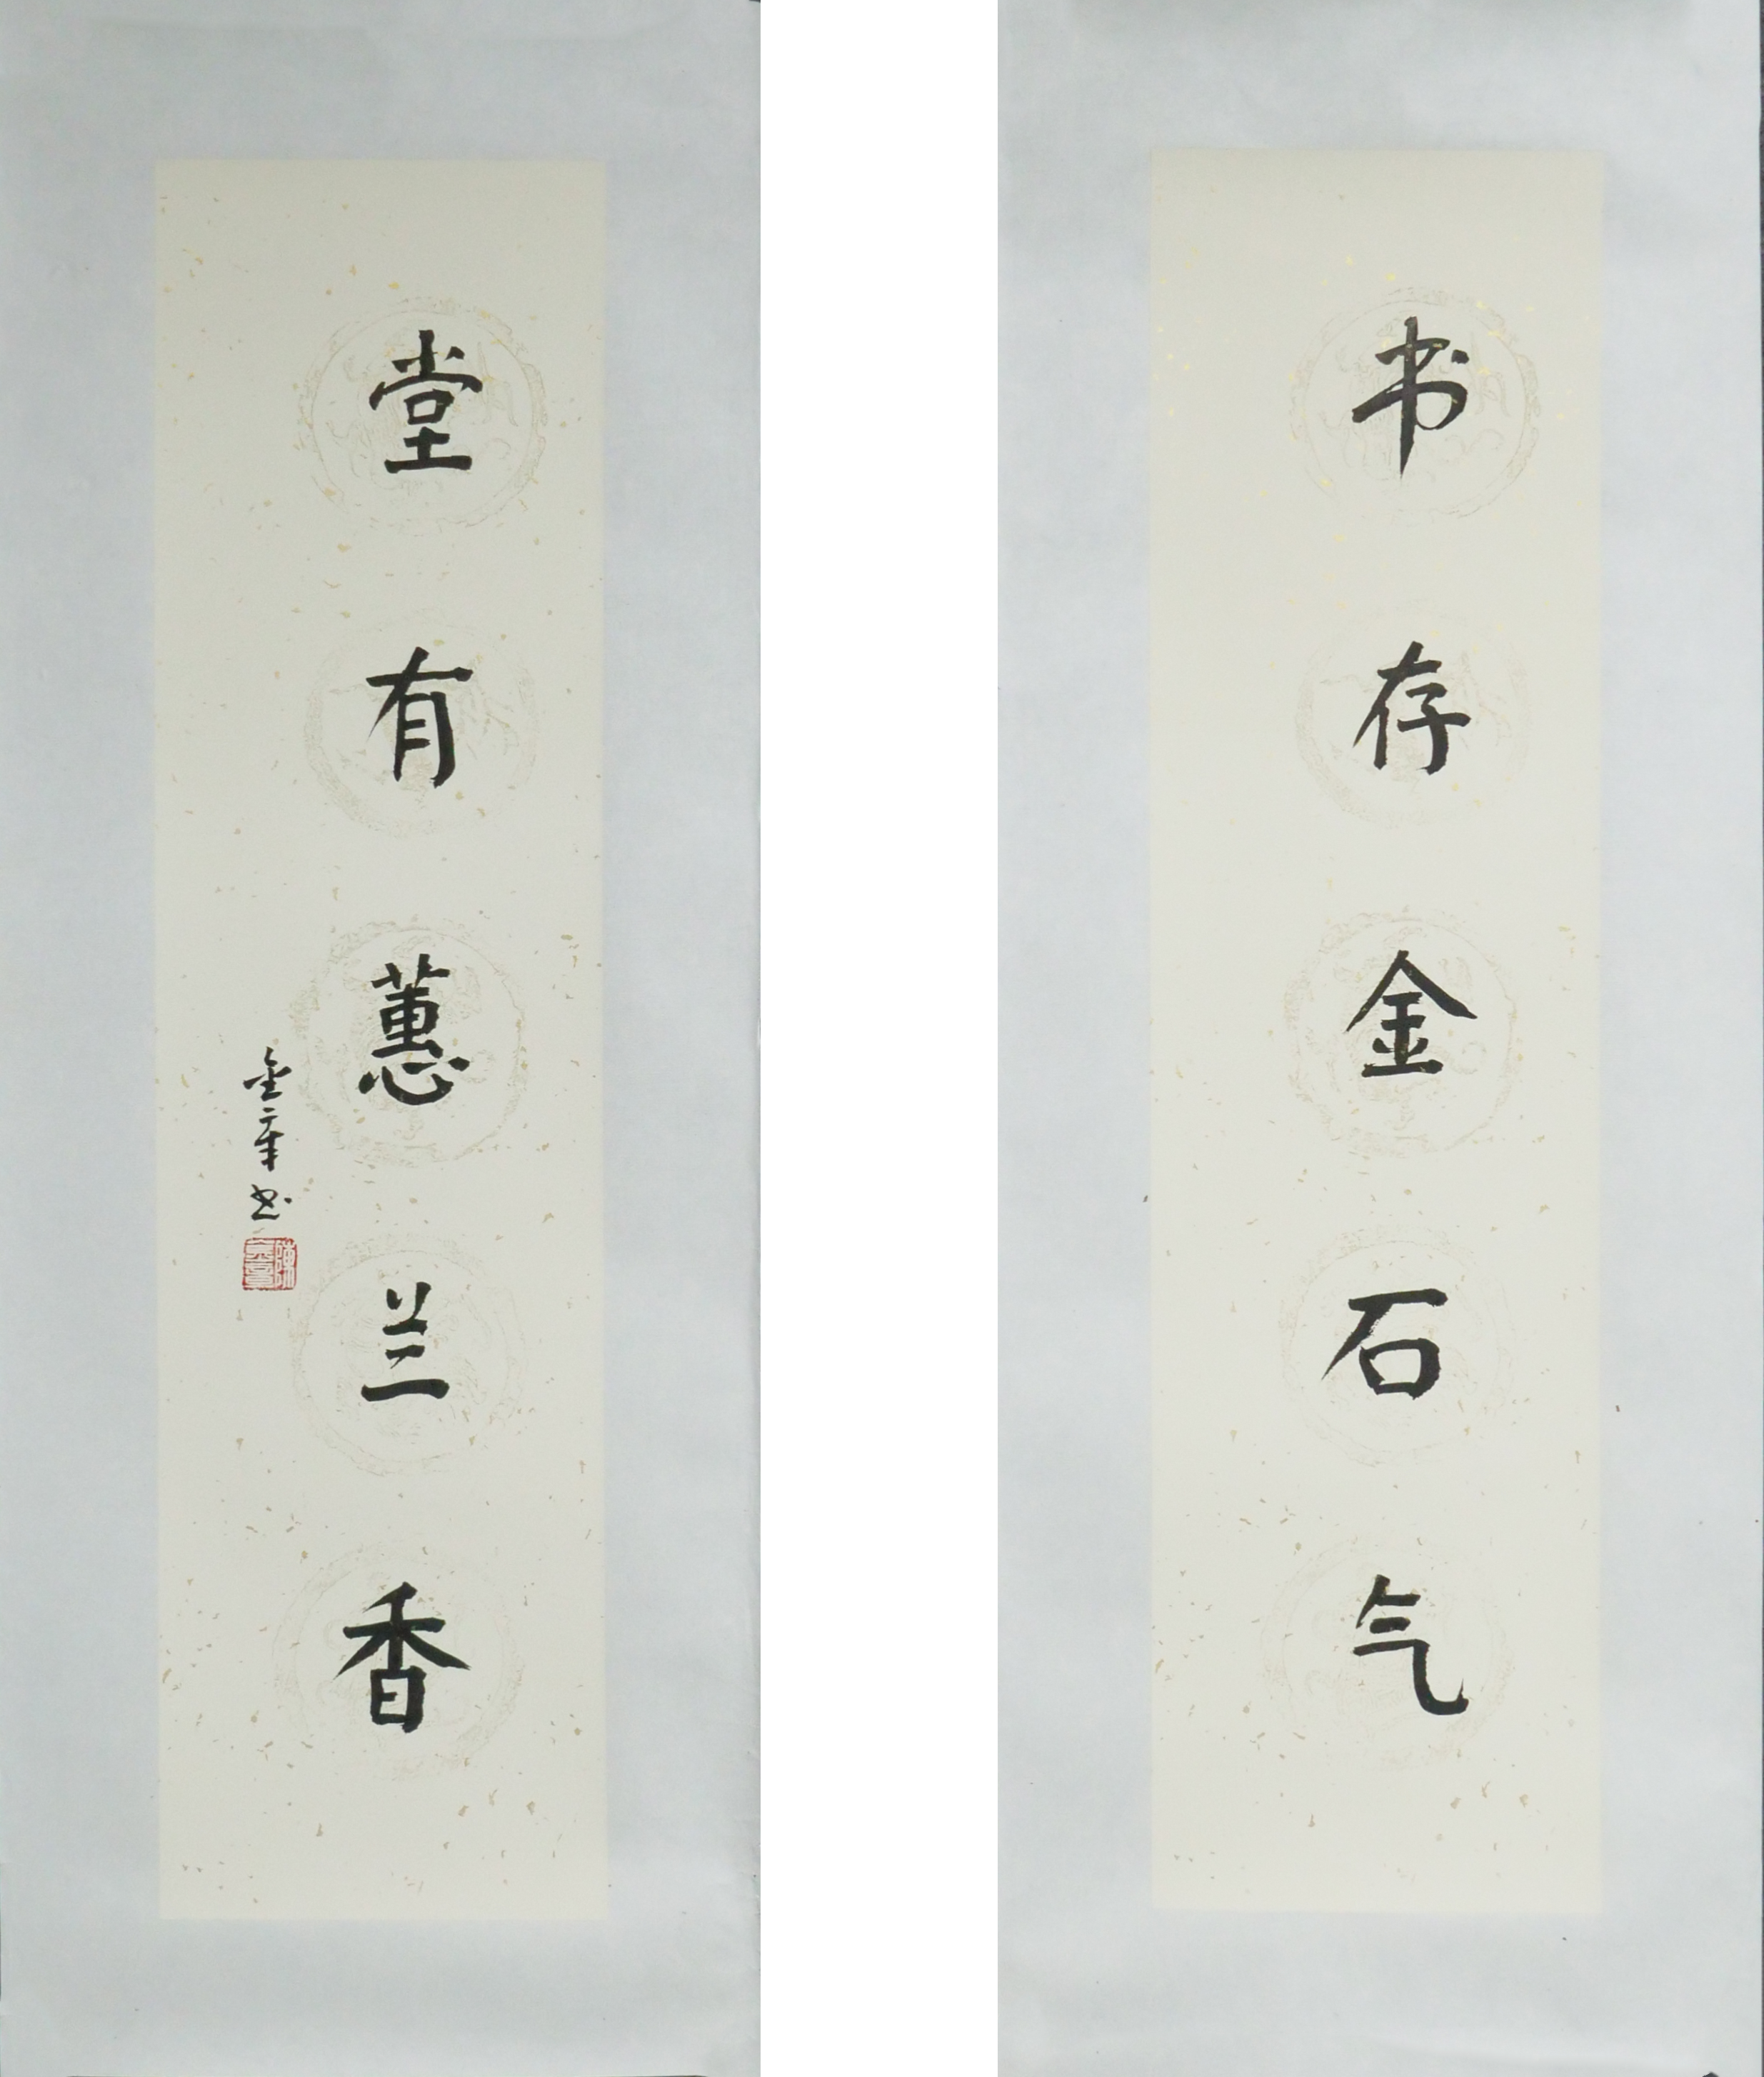 书存金石气
堂有蕙兰香
金章书